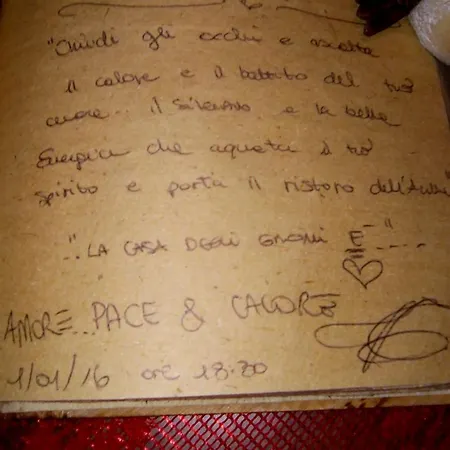 "Chiudi gli occhi e ascolta
il calore e il battito del tuo
cuore... il silenzio e la bella
Energia che aquieta il tuo
spirito e porta il ristoro dell'Anima"
..."LA CASA DEGLI GNOMI È"....
AMORE... PACE & CALORE
1/01/16 ore 18.20